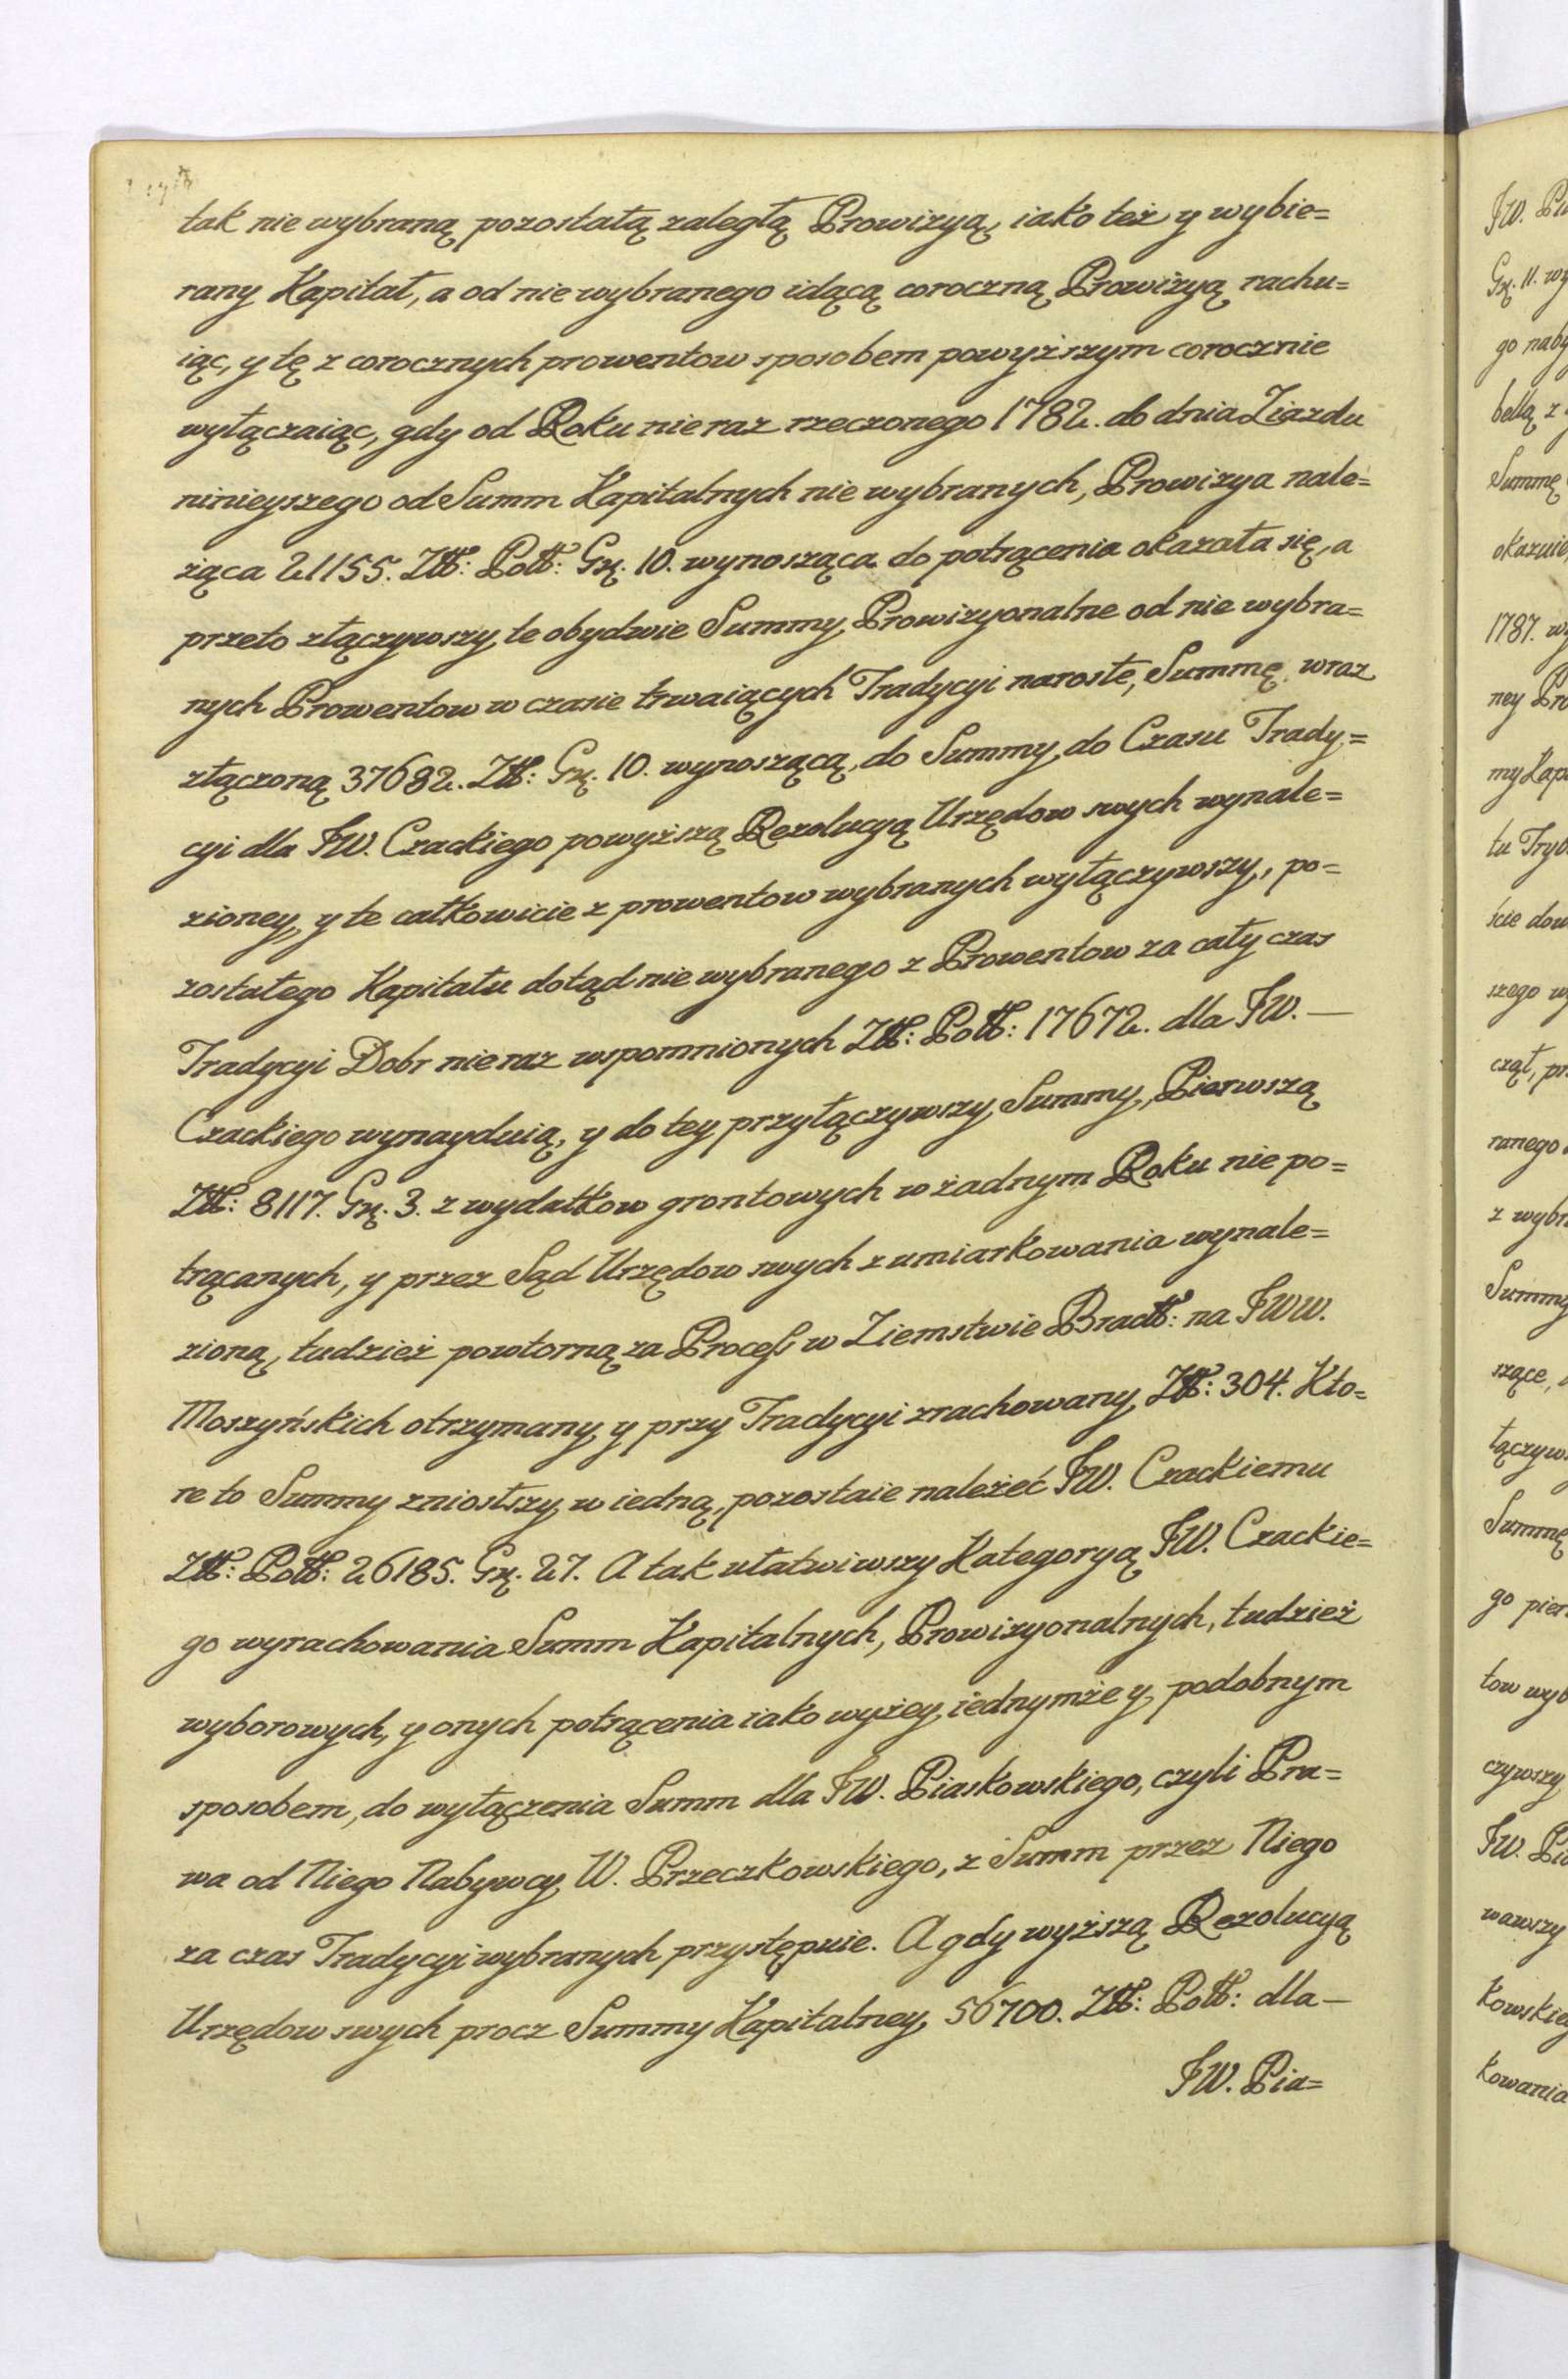 tak nie wybraną pozostałą zaległą Prowizyą, iako też y wybie=
rany Kapitał, a od nie wybranego idącą coroczną Prowizyą rachu=
iąc, y tę z corocznych prowentow sposobem powyższym corocznie
wyłączaiąc, gdy od Roku nie raz rzeczonego 1782. do dnia Ziazdu
ninieyszego od Summ Kapitalnych nie wybranych, Prowizya nale=
żąca 21155. Złł: Poll: Gr. 10. wynosząca do potrącenia okazała się, a
przeto złączywszy te obydwie Summy Prowizyonalne od nie wybra=
nych Prowentow w czasie trwaiących Tradycyi narosłe, Summę wraz
złączoną 37682. Złł: Gr. 10. wynoszącą, do Summy do Czasu Trady=
cyi dla JW. Czackiego powyższą Rezolucyą Urzędow swych wynale=
zioney, y te całkowicie z prowentow wybranych wyłączywszy, po=
zostałego Kapitału dotąd nie wybranego z Prowentow za cały czas
Tradycyi Dobr nie raz wspomnionych Złł: Poll: 17672. dla JW. —
Czackiego wynayduią, y do tey przyłączywszy Summy, Pierwszą
Złł: 8117. Gr. 3. z wydatkow grontowych w żadnym Roku nie po=
trącanych, y przez Sąd Urzędow swych z umiarkowania wynale=
zioną, tudzież powtorną za Process w Ziemstwie Bracłł: na JWW.
Moszyńskich otrzymany y przy Tradycyi zrachowany Złł: 304. Kto=
re to Summy zniosłszy w iedną, pozostaie należeć JW. Czackiemu
Złł: Poll: 26185. Gr. 27. A tak ułatwiwszy Kategoryą JW. Czackie=
go wyrachowania Summ Kapitalnych, Prowizyonalnych, tudzież
wyborowych, y onych potrącenia iako wyżey, iednymże y podobnym
sposobem, do wyłączenia Summ dla JW. Piaskowskiego, czyli Pra=
wa od Niego Nabywcy W. Przeczkowskiego, z Summ przez Niego
za czas Tradycyi wybranych przystępuie. A gdy wyższą Rezolucyą
Urzędow swych procz Summy Kapitalney 56700. Złł: Poll: dla —
JW. Pia=